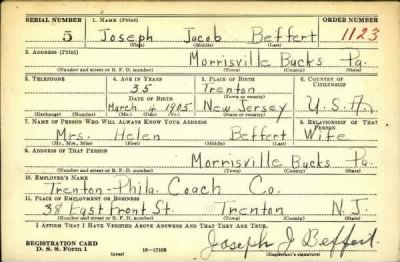 SERIAL NUMBER 1. NAME (Print) ORDER NUMBER
5 Joseph Jacob Beffert 1123
(First) (Middle) (Last)
2. ADDRESS (Print)
Morrisville Bucks Pa.
(Number and street or R. F. D. number) (Town) (County) (State)
3. TELEPHONE 4. AGE IN YEARS 5. PLACE OF BIRTH 6. COUNTRY OF CITIZENSHIP
35 Trenton
DATE OF BIRTH (Town or county)
March 4 1905 New Jersey U.S.A.
(Exchange) (Number) (Mo.) (Day) (Yr.) (State or country)
7. NAME OF PERSON WHO WILL ALWAYS KNOW YOUR ADDRESS 8. RELATIONSHIP OF THAT PERSON
Mrs. Helen Beffert Wife
(Mr., Mrs., Miss) (First) (Middle) (Last)
9. ADDRESS OF THAT PERSON
Morrisville Bucks Pa.
(Number and street or R. F. D. number) (Town) (County) (State)
10. EMPLOYER'S NAME
Trenton-Phila. Coach Co.
11. PLACE OF EMPLOYMENT OR BUSINESS
38 East Front St. Trenton N.J.
(Number and street or R. F. D. number) (Town) (County) (State)
I AFFIRM THAT I HAVE VERIFIED ABOVE ANSWERS AND THAT THEY ARE TRUE.
REGISTRATION CARD
D. S. S. Form 1 16—17105 Joseph J Beffert.
(over) (Registrant's signature)